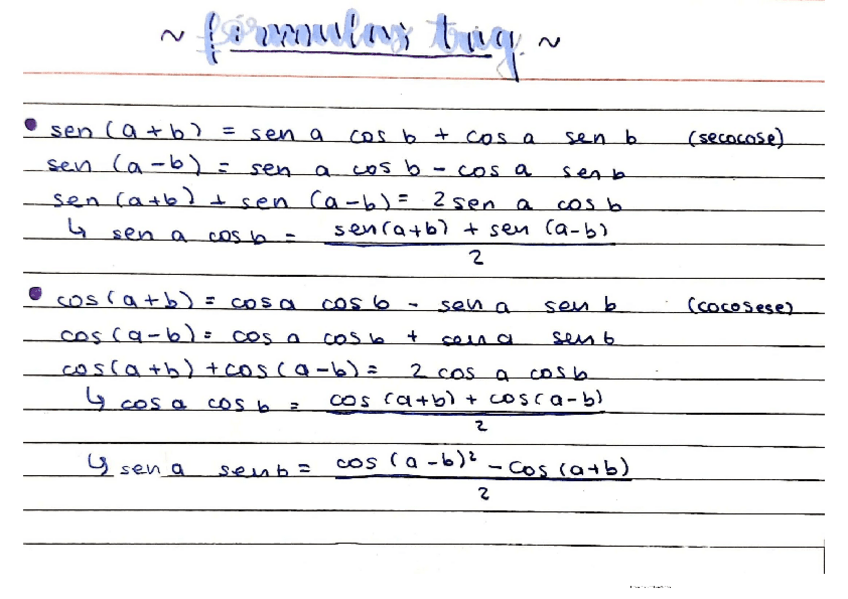 ~ fórmulas trig. ~
• sen (a+b) = sen a cos b + cos a sen b (secocose)
sen (a-b) = sen a cos b - cos a sen b
sen (a+b) + sen (a-b) = 2 sen a cos b
↳ sen a cos b = sen(a+b) + sen (a-b)
2
• cos(a+b) = cos a cos b - sen a sen b (cocosese)
cos (a-b) = cos a cos b + sen a sen b
cos(a+b) + cos(a-b) = 2 cos a cos b
↳ cos a cos b = cos (a+b) + cos(a-b)
2
↳ sen a sen b = cos (a-b)² - cos (a+b)
2